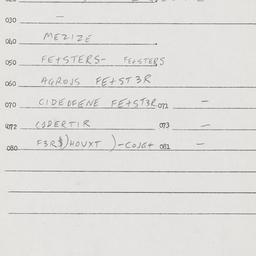 030 —
040 MEZIZE
050 FE+STERS- FE+STERS
060 AGROUS FE+ST3R
070 CIDEOFENE FE+ST3R 071 —
072 CODERTIR 073 —
080 F3R$)HOUXT )-COJE+ 081 —